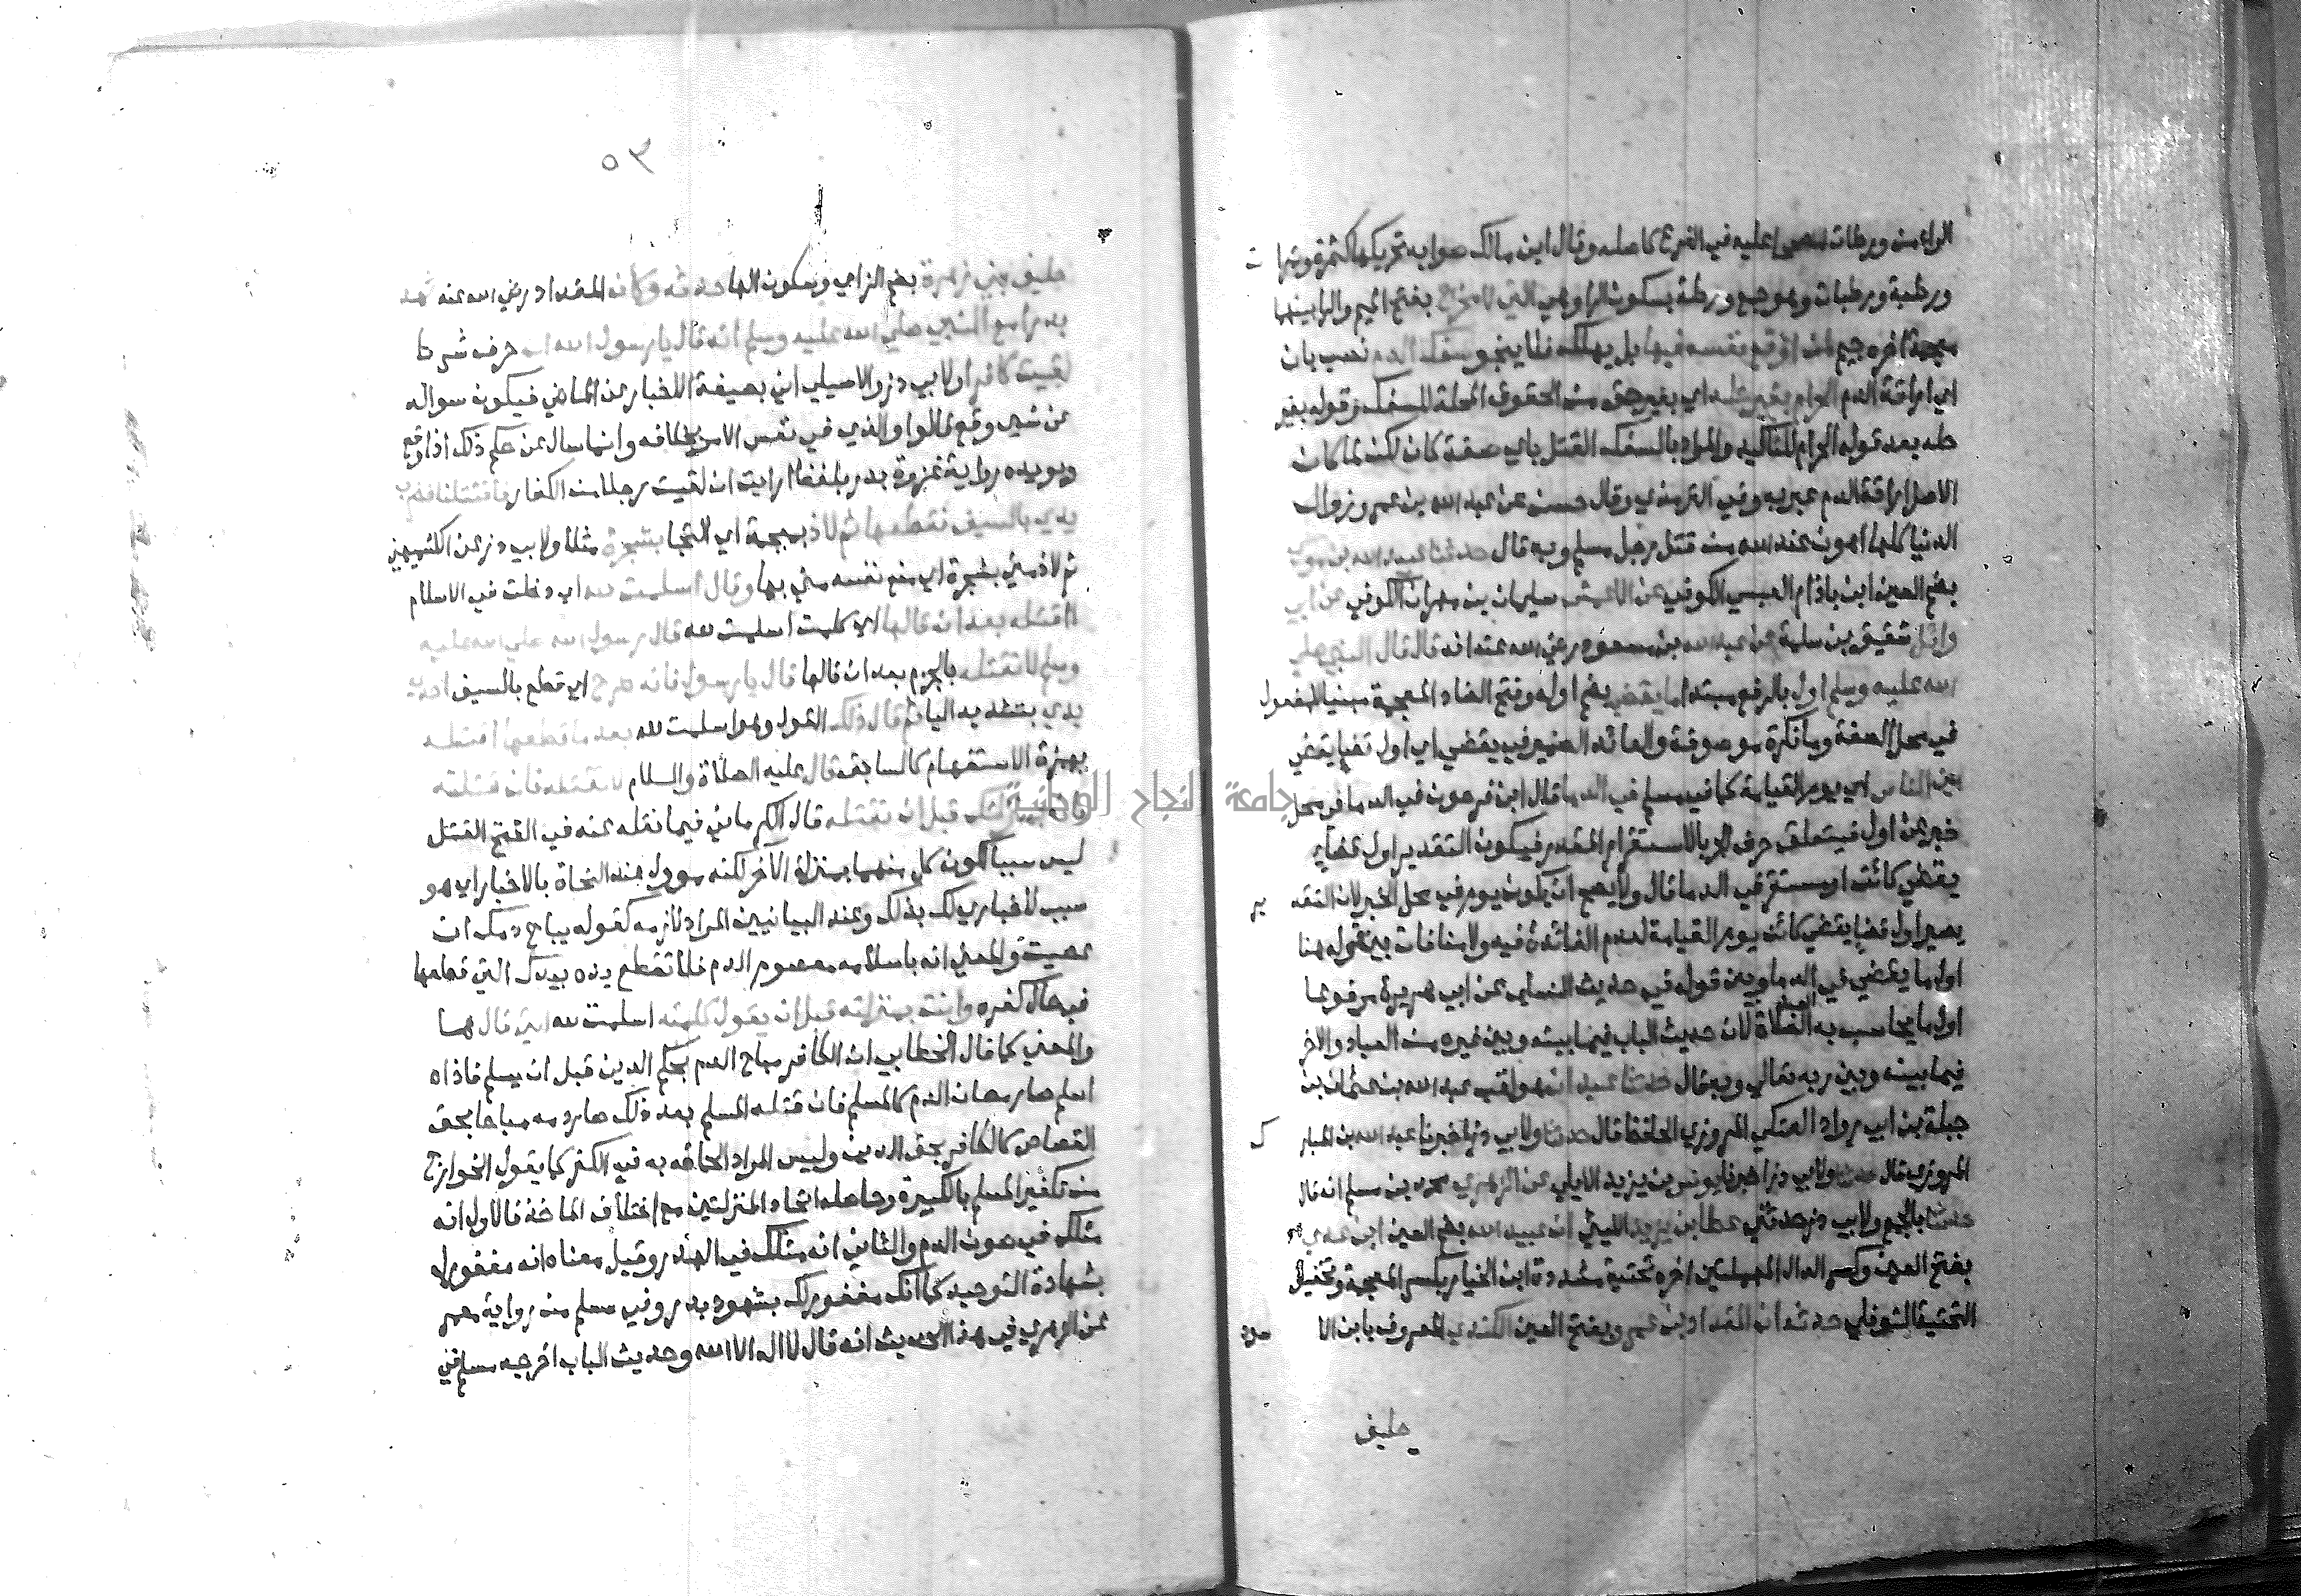 الراء من ورطات مصححا عليه في الفرع كاصله وقال ابن مالك صوابه تحريكها كثمرة وثمرات
وركبة وركبات وهو جمع ورطة بسكون الراء وهي التي لا مخرج بفتح الميم والراء بينهما
معجمة اخره جيم لمن اوقع نفسه فيها بل يهلك فلا ينجو سفك الدم نصب بان
اي اراقة الدم الحرام بغير حله اي بغير حق من الحقوق المحلة للسفك وقوله بغير
حله بعد قوله الحرام للتاكيد والمراد بالسفك القتل باي صفة كان لكن لما كان
الاصل اراقة الدم عبر به وفي الترمذي وقال حسن عن عبد الله بن عمرو زوال
الدنيا كلها اهون عند الله من قتل رجل مسلم وبه قال حدثنا عبيد الله بن موسى
بضم العين ابن باذام العبسي الكوفي عن الاعمش سليمان بن مهران الكوفي عن ابي
وائل شقيق بن سلمة عن عبد الله بن مسعود رضي الله عنه انه قال قال النبي صلي
الله عليه وسلم اول بالرفع مبتدا ما يقضى بضم اوله وفتح الضاد المعجمة مبنيا للمفعول
في محل الصفة وما نكرة موصوفة والعائد الضمير في يقضي اي اول قضا يقضي
بين الناس اي يوم القيامة كما في مسلم في الدما قال ابن فرحون في الدما في محل
خبر عن اول فيتعلق حرف الجر بالاستقرار المقدر فيكون التقدير اول قضا
يقضي كائن او مستقر في الدما قال ولا يصح ان يكون يوم في محل الخبر لان التقدير
يصير اول قضا يقضي كائن يوم القيامة لعدم الفائدة فيه ولا منافات بين قوله هنا
اول ما يقضي في الدما وبين قوله في حديث النسائي عن ابي هريرة مرفوعا
اول ما يحاسب به العبد الصلاة لان حديث الباب فيما بينه وبين غيره من العباد والاخر
فيما بينه وبين ربه تعالي وبه قال حدثنا عبدان هو لقب عبد الله بن عثمان بن
جبلة بن ابي رواد العتكي المروزي الحافظ قال حدثنا ولابي ذر اخبرنا عبد الله بن المبارك
المروزي قال حدثنا ولابي ذر اخبرنا يونس بن يزيد الايلي عن الزهري محمد بن مسلم انه قال
حدثنا بالجمع ولابي ذر حدثني عطا بن يزيد الليثي ان عبيد الله بضم العين ابن عدي
بفتح العين وكسر الدال المهملتين اخره تحتية مشددة ابن الخيار بكسر المعجمة وتخفيف
التحتية النوفلي حدثه ان المقداد بن عمرو بفتح العين الكندي المعروف بابن الاسود
حليف
٥٣
حليف بني زهرة بضم الزاي وسكون الها حدثه وكان المقداد رضي الله عنه شهد
بدرا مع النبي صلي الله عليه وسلم انه قال يا رسول الله ان حرف شرط
لقيت كافرا ولابي ذر والاصيلي اني بصيغة الاخبار عن الماضي فيكون سواله
عن شي وقع قالوا والذي في نفس الامر بخلافه وانما سال عن حكم ذلك اذا وقع
ويويده رواية غزوة بدر بلفظ ارايت ان لقيت رجلا من الكفار فاقتتلنا فضرب
يدي بالسيف فقطعها ثم لاذ بمعجمة اي التجا بشجرة مثلا ولابي ذر عن الكشميهني
ثم لاذ مني بشجرة اي منع نفسه مني بها وقال اسلمت لله اي دخلت في الاسلام
ااقتله بعد ان قالها اي كلمة اسلمت لله قال رسول الله صلى الله عليه
وسلم لا تقتله بالجزم بعد ان قالها قال يا رسول فانه طرح اي قطع بالسيف احدى
يدي بتشديد اليا ثم قال ذلك القول وهو اسلمت لله بعد ما قطعها اقتله
بهمزة الاستفهام كالسابق قال عليه الصلاة والسلام لا تقتله فان قتلته
فانه بمنزلتك قبل ان تقتله قال الكرماني فيما نقله عنه في الفتح القتل
ليس سببا لكون كل منهما بمنزلة الاخر لكنه موول عند النحاة بالاخبار اي هو
سبب لاخباري لك بذلك وعند البيانيين المراد لازمه كقوله يباح دمك ان
عصيت والمعني انه باسلامه معصوم الدم فلا تقطع يده بيدك التي قطعها
في حال كفره وانت بمنزلته قبل ان يقول كلمته اسلمت لله التي قالها
والمعني كما قال الخطابي ان الكافر مباح الدم بحكم الدين قبل ان يسلم فاذا
اسلم صار مصان الدم كالمسلم فان قتله المسلم بعد ذلك صار دمه مباحا بحق
القصاص كالكافر بحق الدين وليس المراد الحاقه به في الكفر كما يقول الخوارج
من تكفير المسلم بالكبيرة وحاصله اتحاد المنزلتين مع اختلاف الماخذ فالاول انه
مثلك في صون الدم والثاني انه مثلك في الهدر وقيل معناه انه مغفور له
بشهادة التوحيد كما انك مغفور لك بشهود بدر وفي مسلم من رواية معمر
عن الزهري في هذا الحديث انه قال لا اله الا الله وحديث الباب اخرجه مسلم في
جامعة النجاح الوطنية